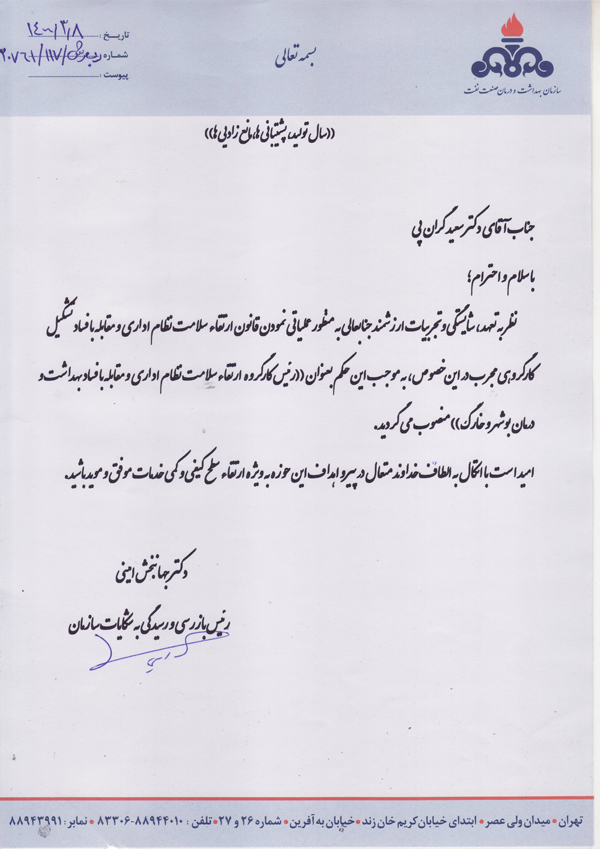 تاریخ : ۱۴۰۰/۳/۸
بسمه تعالی
شماره :
پیوست :
سازمان بهداشت و درمان صنعت نفت
((سال تولید، پشتیبانی ها، مانع زدایی ها))
جناب آقای دکتر سعید گران پی
با سلام و احترام؛
نظر به تعهد، شایستگی و تجربیات ارزشمند جنابعالی به منظور عملیاتی نمودن قانون ارتقاء سلامت نظام اداری و مقابله با فساد تشکیل
کارگروهی مجرب در این خصوص، به موجب این حکم بعنوان ((رئیس کارگروه ارتقاء سلامت نظام اداری و مقابله با فساد بهداشت و
درمان بوشهر و خارگ)) منصوب می گردید.
امید است با اتکال به الطاف خداوند متعال در پیرو اهداف این حوزه به ویژه ارتقاء سطح کیفی و کمی خدمات موفق و موید باشید.
دکتر جهانبخش امینی
رئیس بازرسی و رسیدگی به شکایات سازمان
تهران * میدان ولی عصر * ابتدای خیابان کریم خان زند * خیابان به آفرین * شماره ۲۶ و ۲۷ * تلفن : ۸۸۹۴۴۰۱۰-۸۳۳۰۶ * نمابر : ۸۸۹۴۳۹۹۱